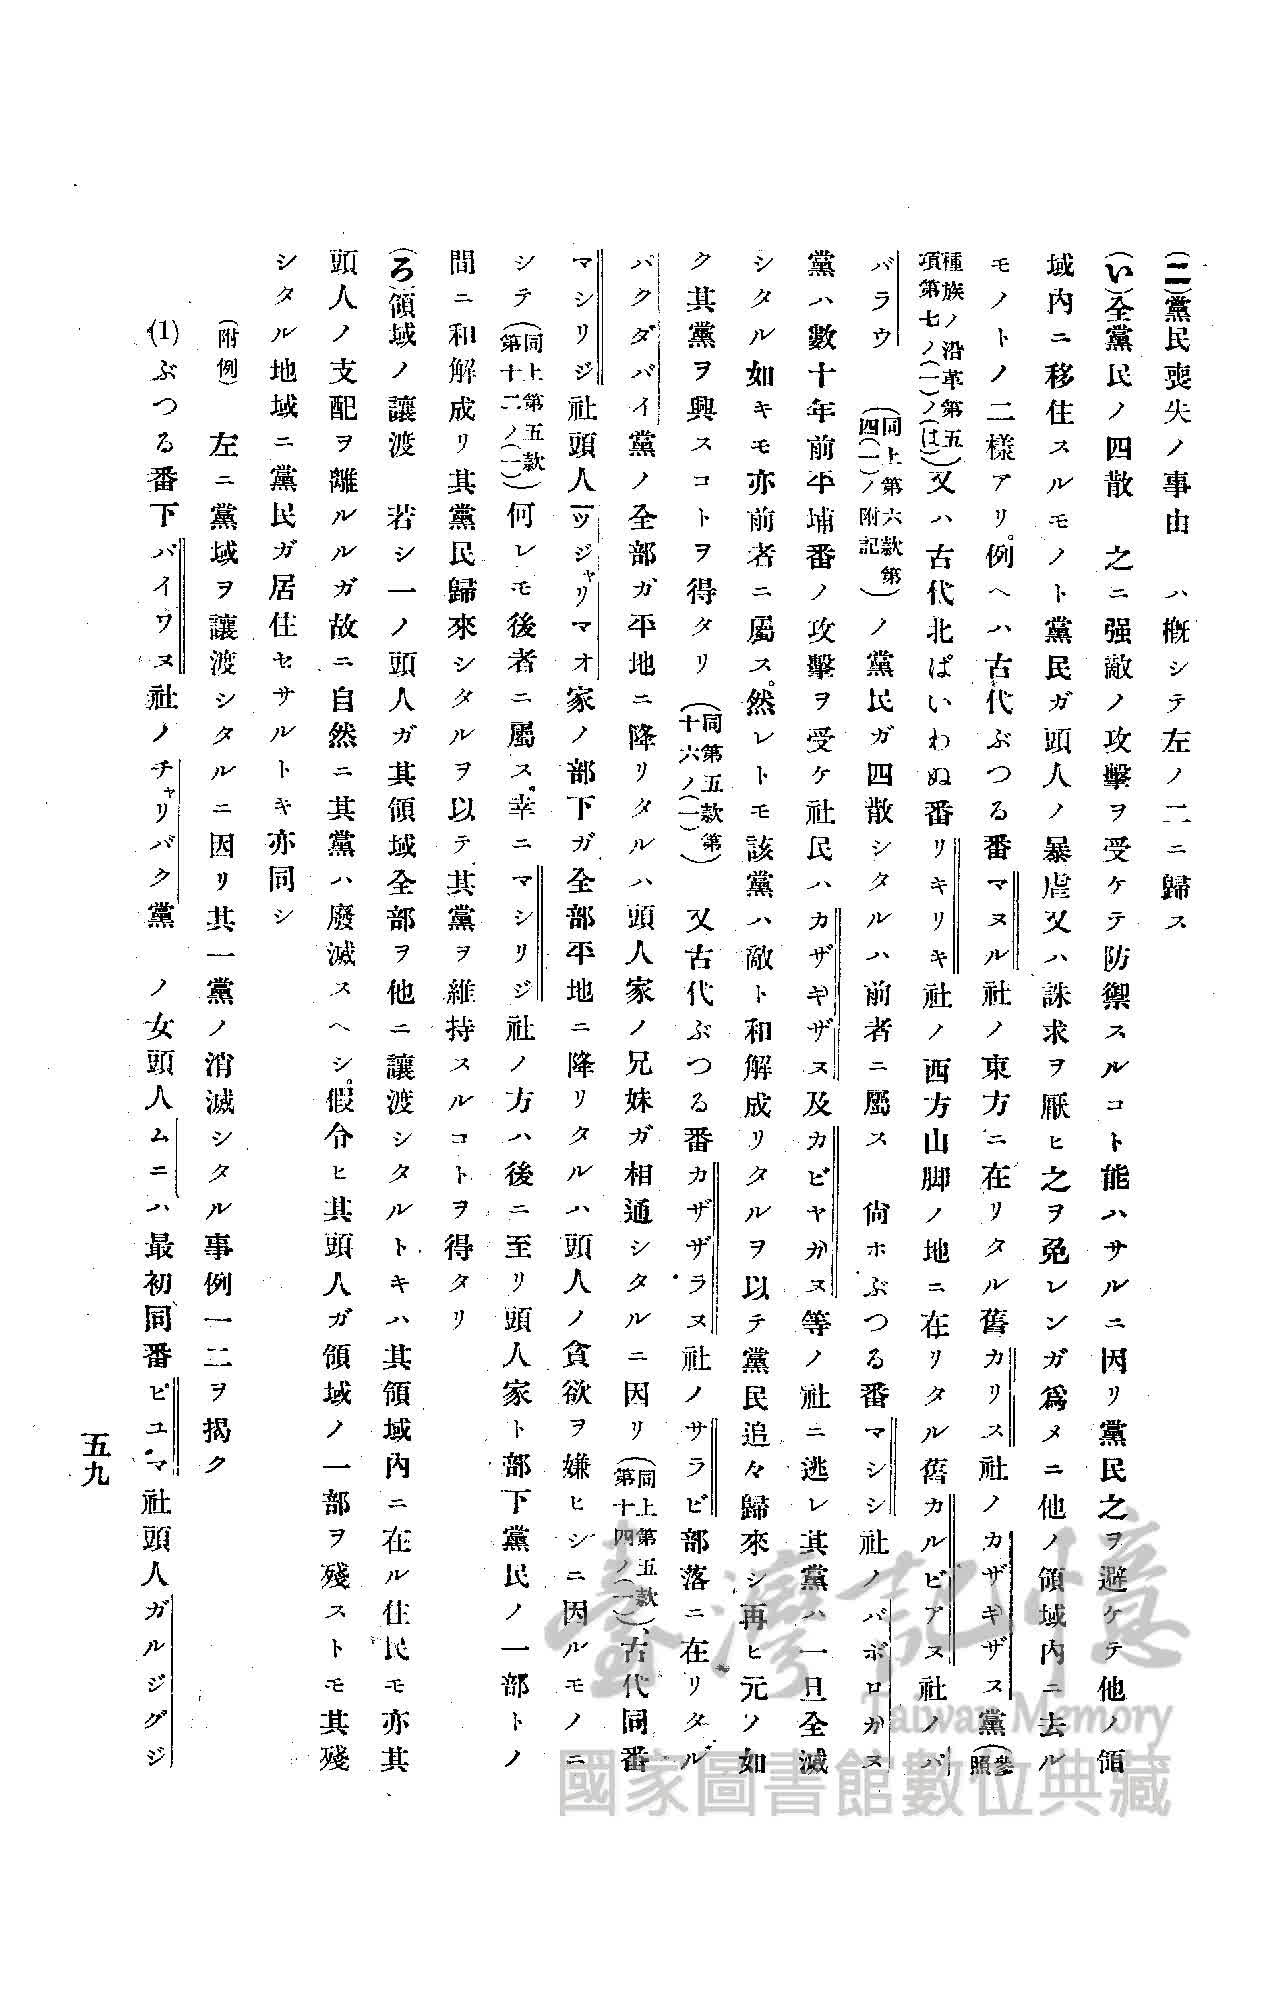 (二)黨民喪失ノ事由　ハ概シテ左ノ二ニ歸ス
(い)全黨民ノ四散　之ニ强敵ノ攻擊ヲ受ケテ防禦スルコト能ハサルニ因リ黨民之ヲ避ケテ他ノ領
域內ニ移住スルモノト黨民ガ頭人ノ暴虐又ハ誅求ヲ厭ヒ之ヲ免レンガ爲メニ他ノ領域內ニ去ル
モノトノ二樣アリ。例ヘハ古代ぶつる番マヌル社ノ東方ニ在リタル舊カリス社ノカザギザス黨(參照
種族ノ沿革第五項第七ノ(一)ノ(は))又ハ古代北ぱいわぬ番リキリキ社ノ西方山脚ノ地ニ在リタル舊カルビアヌ社ノバ
バラウ(同上第六款第四(一)ノ附記)ノ黨民ガ四散シタルハ前者ニ屬ス　尙ホぶつる番マシシ社ノバボロガヌ
黨ハ數十年前平埔番ノ攻擊ヲ受ケ社民ハカザギザヌ及カビヤガヌ等ノ社ニ逃レ其黨ハ一旦全滅
シタル如キモ亦前者ニ屬ス。然レトモ該黨ハ敵ト和解成リタルヲ以テ黨民追々歸來シ再ヒ元ノ如
ク其黨ヲ興スコトヲ得タリ(同第五款第十六ノ(一))又古代ぶつる番カザザラヌ社ノサラビ部落ニ在リタル
バクダバイ黨ノ全部ガ平地ニ降リタルハ頭人家ノ兄妹ガ相通シタルニ因リ(同上第五款第十四ノ(一))、古代同番
マシリジ社頭人ツジヤリマオ家ノ部下ガ全部平地ニ降リタルハ頭人ノ貪欲ヲ嫌ヒシニ因ルモノニ
シテ(同上第五款第十二ノ(一))何レモ後者ニ屬ス。幸ニマシリジ社ノ方ハ後ニ至リ頭人家ト部下黨民ノ一部トノ
間ニ和解成リ其黨民歸來シタルヲ以テ其黨ヲ維持スルコトヲ得タリ
(ろ)領域ノ讓渡　若シ一ノ頭人ガ其領域全部ヲ他ニ讓渡シタルトキハ其領域內ニ在ル住民モ亦其
頭人ノ支配ヲ離ルルガ故ニ自然ニ其黨ハ廢滅スヘシ。假令ヒ其頭人ガ領域ノ一部ヲ殘ストモ其殘
シタル地域ニ黨民ガ居住セサルトキ亦同シ
(附例)　左ニ黨域ヲ讓渡シタルニ因リ其一黨ノ消滅シタル事例一二ヲ揭ク
(1)ぶつる番下パイワヌ社ノチャリバク黨　ノ女頭人ムニハ最初同番ピユマ社頭人ガルジグジ
五九
臺灣記憶
Taiwan Memory
國家圖書館數位典藏